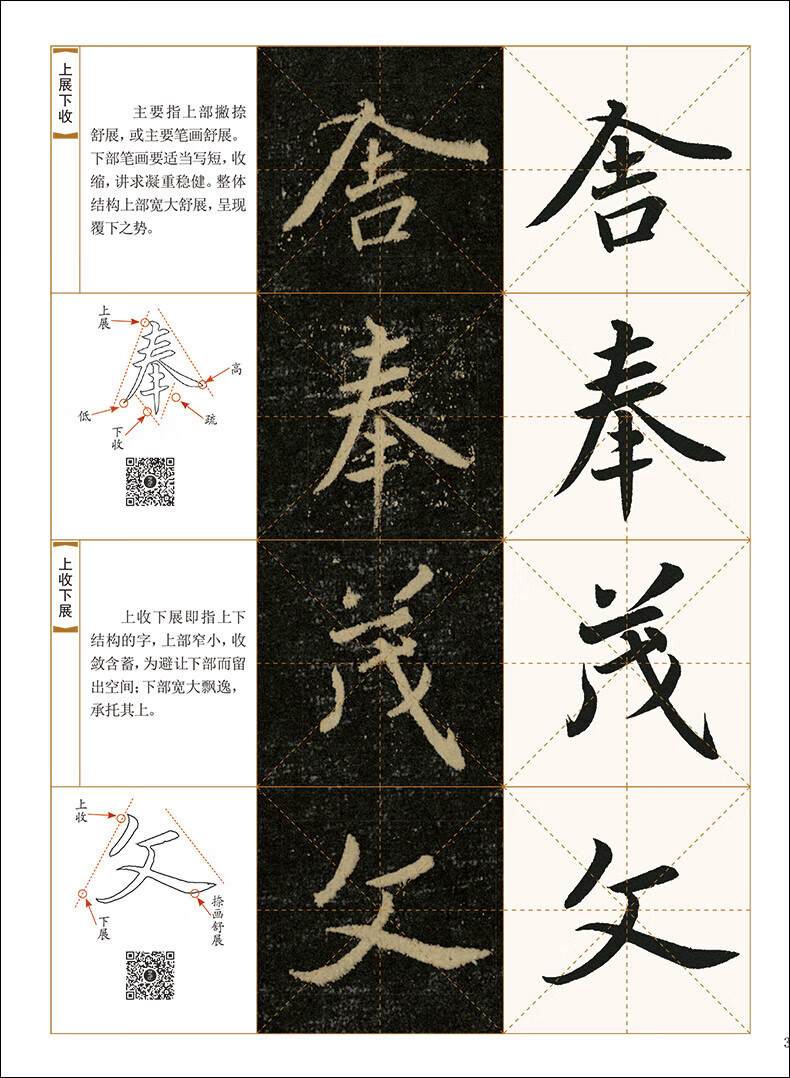 上展下收
主要指上部撇捺
舒展，或主要笔画舒展。
下部笔画要适当写短，收
缩，讲求凝重稳健。整体
结构上部宽大舒展，呈现
覆下之势。
舍
舍
上展
奉
高
低
下收
疏
奉
奉
上收下展
上收下展即指上下
结构的字，上部窄小，收
敛含蓄，为避让下部而留
出空间；下部宽大飘逸，
承托其上。
茂
茂
上收
文
下展
捺画舒展
文
文